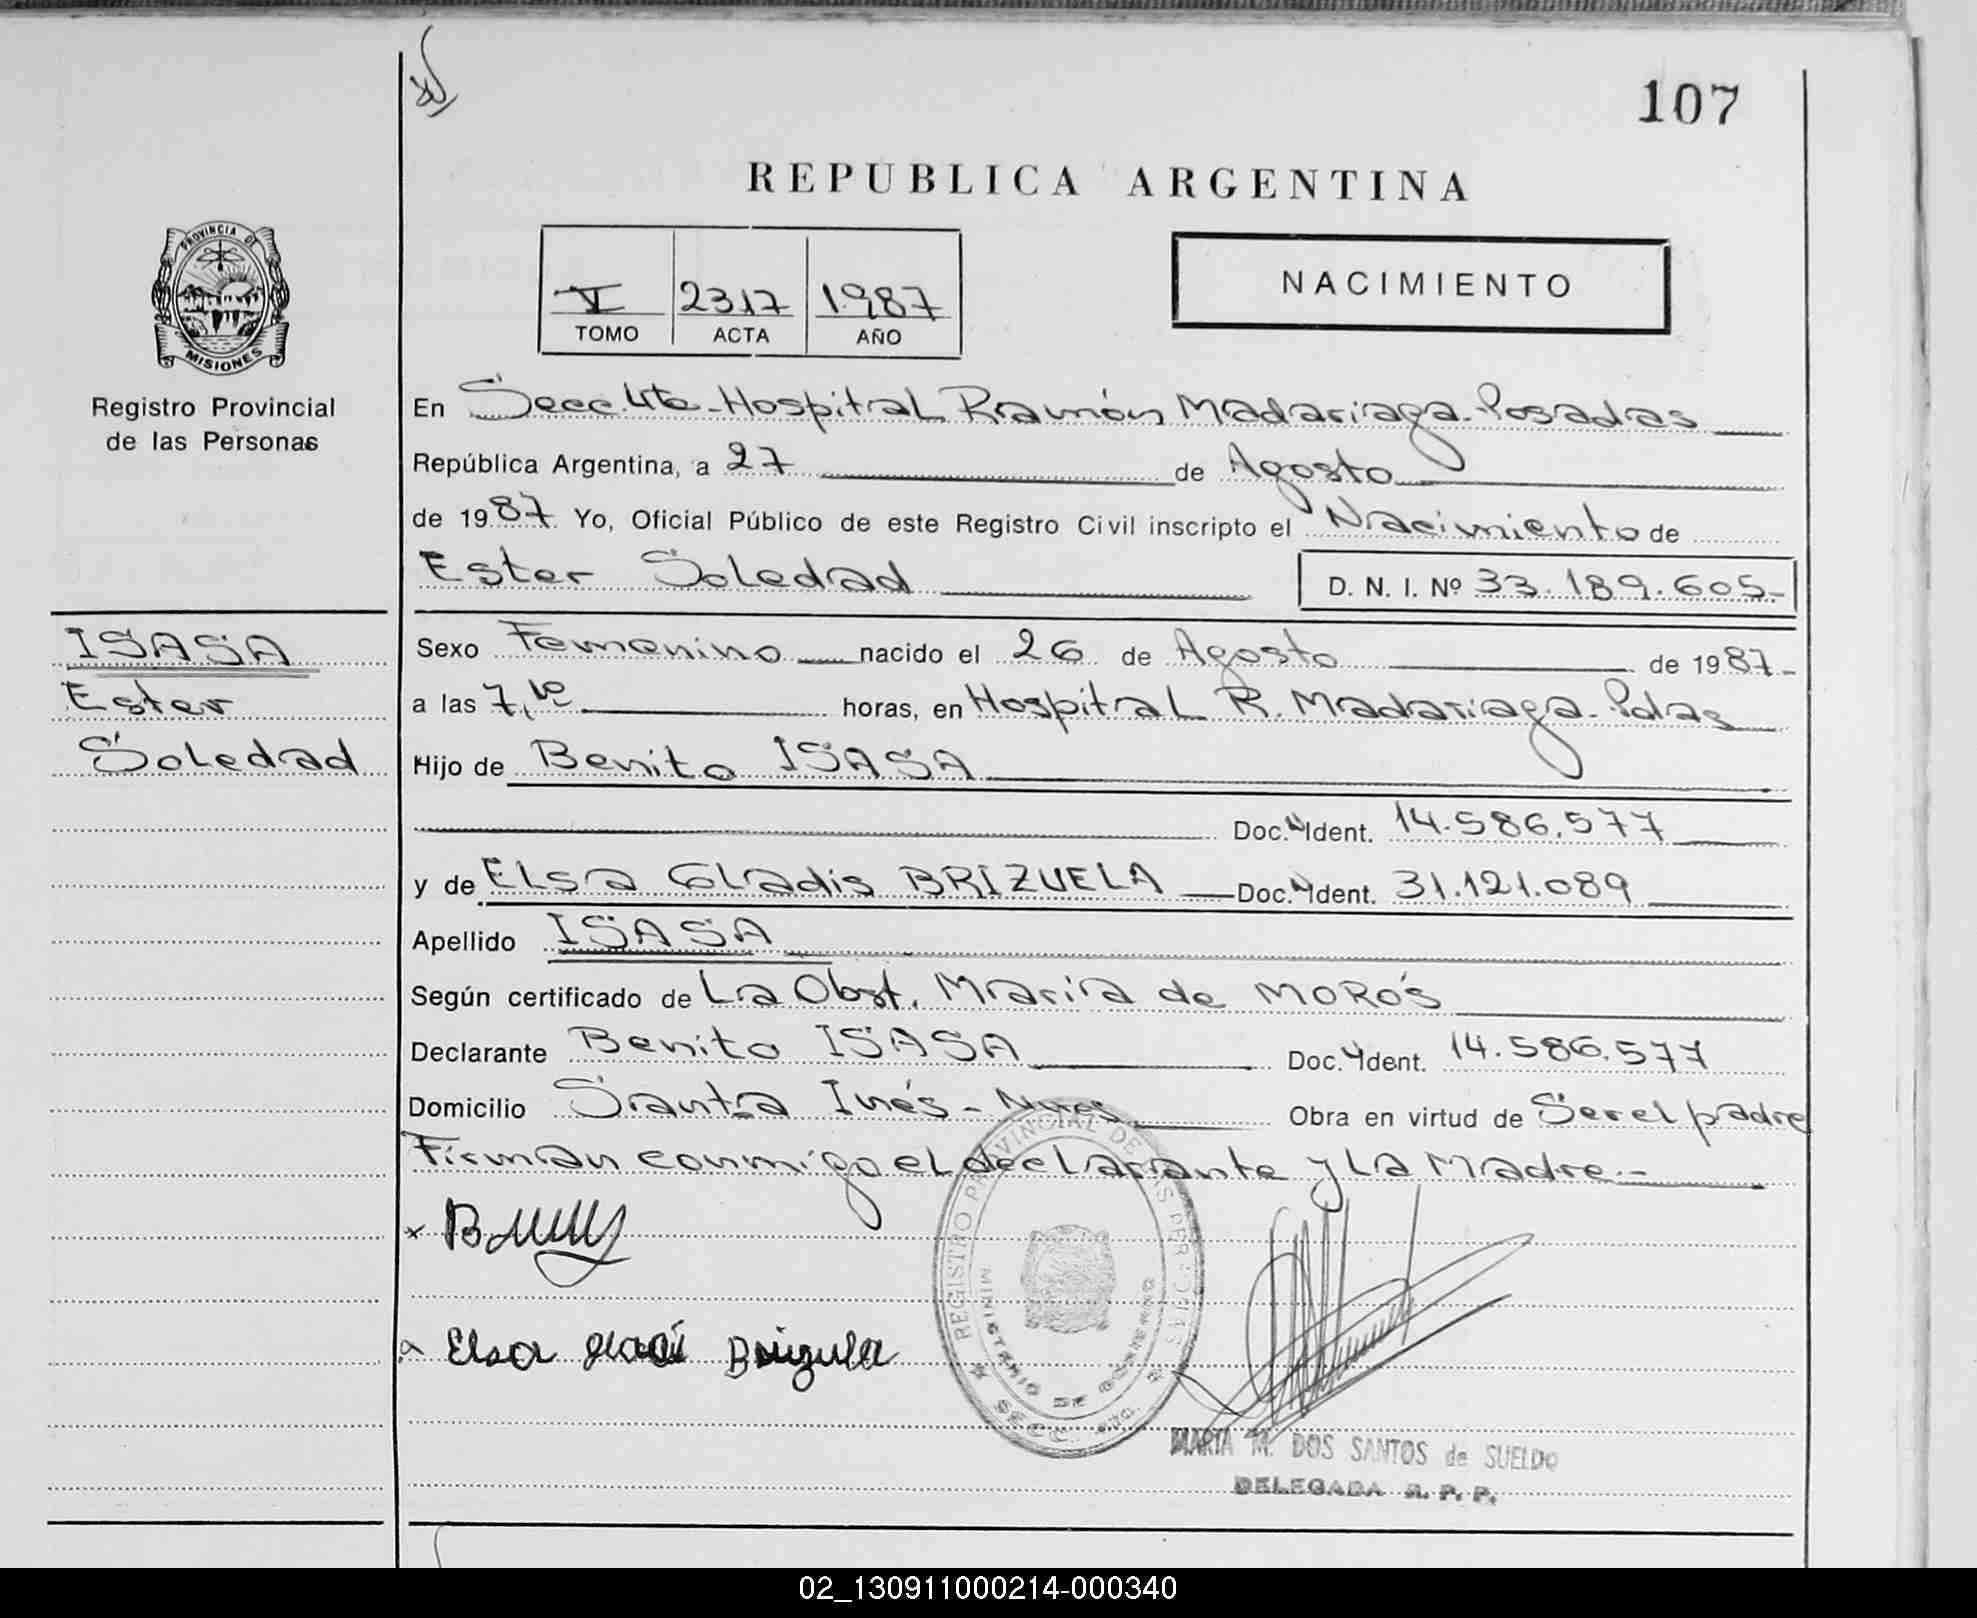 107
REPUBLICA ARGENTINA
PROVINCIA DE
MISIONES
Registro Provincial
de las Personas
V 2317 1987
TOMO ACTA AÑO
NACIMIENTO
En Secc. 4ta - Hospital Ramón Madariaga - Posadas
República Argentina, a 27 de Agosto
de 1987. Yo, Oficial Público de este Registro Civil inscripto el Nacimiento de
Ester Soledad D. N. I. Nº 33.189.605-
ISASA
Ester
Soledad
Sexo Femenino nacido el 26 de Agosto de 1987-
a las 7,10 horas, en Hospital R. Madariaga - Pdas
Hijo de Benito ISASA
Doc. Ident. 14.586.577
y de Elsa Gladis BRIZUELA Doc. Ident. 31.121.089
Apellido ISASA
Según certificado de La Obst. María de MOROS
Declarante Benito ISASA Doc. Ident. 14.586.577
Domicilio Santa Inés - Obra en virtud de Ser el padre
Firman conmigo el declarante y La Madre.-
Elsa Brizuela
REGISTRO PROVINCIAL DE LAS PERSONAS
MINISTERIO DE GOBIERNO
SECC. 4ta.
MARIA M. DOS SANTOS de SUELDO
DELEGADA R. P. P.
02_130911000214-000340